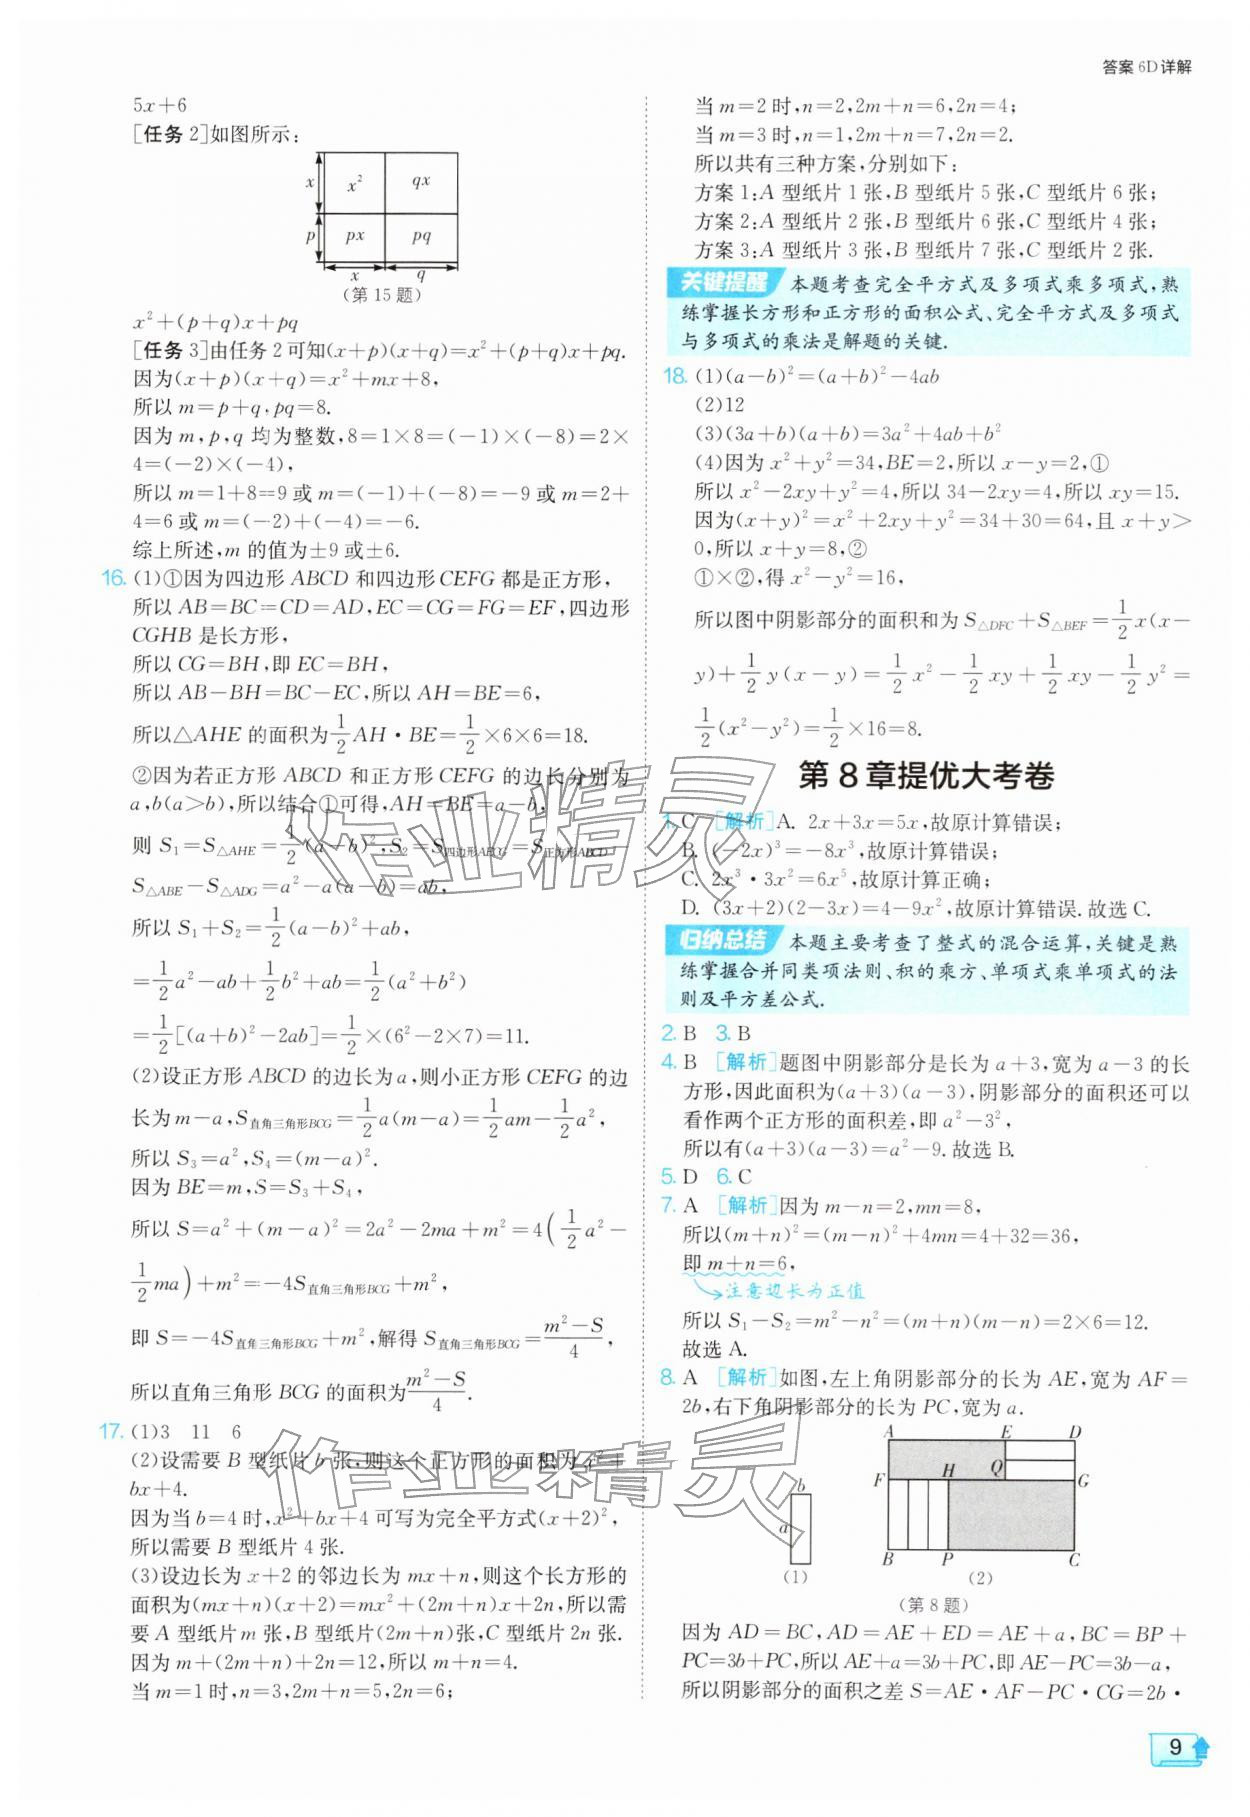 答案 6D 详解
5x+6
[任务 2]如图所示:
x
x²
qx
p
px
pq
x
q
(第 15 题)
x²+(p+q)x+pq
[任务 3]由任务 2 可知(x+p)(x+q)=x²+(p+q)x+pq.
因为(x+p)(x+q)=x²+mx+8,
所以 m=p+q,pq=8.
因为 m,p,q 均为整数,8=1×8=(-1)×(-8)=2×
4=(-2)×(-4),
所以 m=1+8=9 或 m=(-1)+(-8)=-9 或 m=2+
4=6 或 m=(-2)+(-4)=-6.
综上所述,m 的值为±9 或±6.
16. (1)①因为四边形 ABCD 和四边形 CEFG 都是正方形,
所以 AB=BC=CD=AD,EC=CG=FG=EF,四边形
CGHB 是长方形,
所以 CG=BH,即 EC=BH,
所以 AB-BH=BC-EC,所以 AH=BE=6,
所以△AHE 的面积为 1/2 AH·BE=1/2×6×6=18.
②因为若正方形 ABCD 和正方形 CEFG 的边长分别为
a,b(a>b),所以结合①可得,AH=BE=a-b,
则 S₁=S△AHE=1/2(a-b)²,S₂=S四边形AECG=S正方形ABCD-
S△ABE-S△ADG=a²-a(a-b)=ab,
所以 S₁+S₂=1/2(a-b)²+ab,
=1/2a²-ab+1/2b²+ab=1/2(a²+b²)
=1/2[(a+b)²-2ab]=1/2×(6²-2×7)=11.
(2)设正方形 ABCD 的边长为 a,则小正方形 CEFG 的边
长为 m-a,S直角三角形BCG=1/2a(m-a)=1/2am-1/2a²,
所以 S₃=a²,S₄=(m-a)².
因为 BE=m,S=S₃+S₄,
所以 S=a²+(m-a)²=2a²-2ma+m²=4(1/2a²-
1/2ma)+m²=-4S直角三角形BCG+m²,
即 S=-4S直角三角形BCG+m²,解得 S直角三角形BCG=(m²-S)/4,
所以直角三角形 BCG 的面积为(m²-S)/4.
17. (1)3 11 6
(2)设需要 B 型纸片 b 张,则这个正方形的面积为 x²+
bx+4.
因为当 b=4 时,x²+bx+4 可写为完全平方式(x+2)²,
所以需要 B 型纸片 4 张.
(3)设边长为 x+2 的邻边长为 mx+n,则这个长方形的
面积为(mx+n)(x+2)=mx²+(2m+n)x+2n,所以需
要 A 型纸片 m 张,B 型纸片(2m+n)张,C 型纸片 2n 张.
因为 m+(2m+n)+2n=12,所以 m+n=4.
当 m=1 时,n=3,2m+n=5,2n=6;
当 m=2 时,n=2,2m+n=6,2n=4;
当 m=3 时,n=1,2m+n=7,2n=2.
所以共有三种方案,分别如下:
方案 1:A 型纸片 1 张,B 型纸片 5 张,C 型纸片 6 张;
方案 2:A 型纸片 2 张,B 型纸片 6 张,C 型纸片 4 张;
方案 3:A 型纸片 3 张,B 型纸片 7 张,C 型纸片 2 张.
关键提醒 本题考查完全平方式及多项式乘多项式,熟
练掌握长方形和正方形的面积公式、完全平方式及多项式
与多项式的乘法是解题的关键.
18. (1)(a-b)²=(a+b)²-4ab
(2)12
(3)(3a+b)(a+b)=3a²+4ab+b²
(4)因为 x²+y²=34,BE=2,所以 x-y=2,①
所以 x²-2xy+y²=4,所以 34-2xy=4,所以 xy=15.
因为(x+y)²=x²+2xy+y²=34+30=64,且 x+y>
0,所以 x+y=8,②
①×②,得 x²-y²=16,
所以图中阴影部分的面积和为 S△DFC+S△BEF=1/2x(x-
y)+1/2y(x-y)=1/2x²-1/2xy+1/2xy-1/2y²=
1/2(x²-y²)=1/2×16=8.
第 8 章提优大考卷
1. C [解析]A. 2x+3x=5x,故原计算错误;
B. (-2x)³=-8x³,故原计算错误;
C. 2x³·3x²=6x⁵,故原计算正确;
D. (3x+2)(2-3x)=4-9x²,故原计算错误.故选 C.
归纳总结 本题主要考查了整式的混合运算,关键是熟
练掌握合并同类项法则、积的乘方、单项式乘单项式的法
则及平方差公式.
2. B 3. B
4. B [解析]题图中阴影部分是长为 a+3,宽为 a-3 的长
方形,因此面积为(a+3)(a-3),阴影部分的面积还可以
看作两个正方形的面积差,即 a²-3²,
所以有(a+3)(a-3)=a²-9.故选 B.
5. D 6. C
7. A [解析]因为 m-n=2,mn=8,
所以(m+n)²=(m-n)²+4mn=4+32=36,
即 m+n=6,
注意边长为正值
所以 S₁-S₂=m²-n²=(m+n)(m-n)=2×6=12.
故选 A.
8. A [解析]如图,左上角阴影部分的长为 AE,宽为 AF=
2b,右下角阴影部分的长为 PC,宽为 a.
A E D
b
F H Q G
a
B P C
(1) (2)
(第 8 题)
因为 AD=BC,AD=AE+ED=AE+a,BC=BP+
PC=3b+PC,所以 AE+a=3b+PC,即 AE-PC=3b-a,
所以阴影部分的面积之差 S=AE·AF-PC·CG=2b·
9
作业精灵
作业精灵